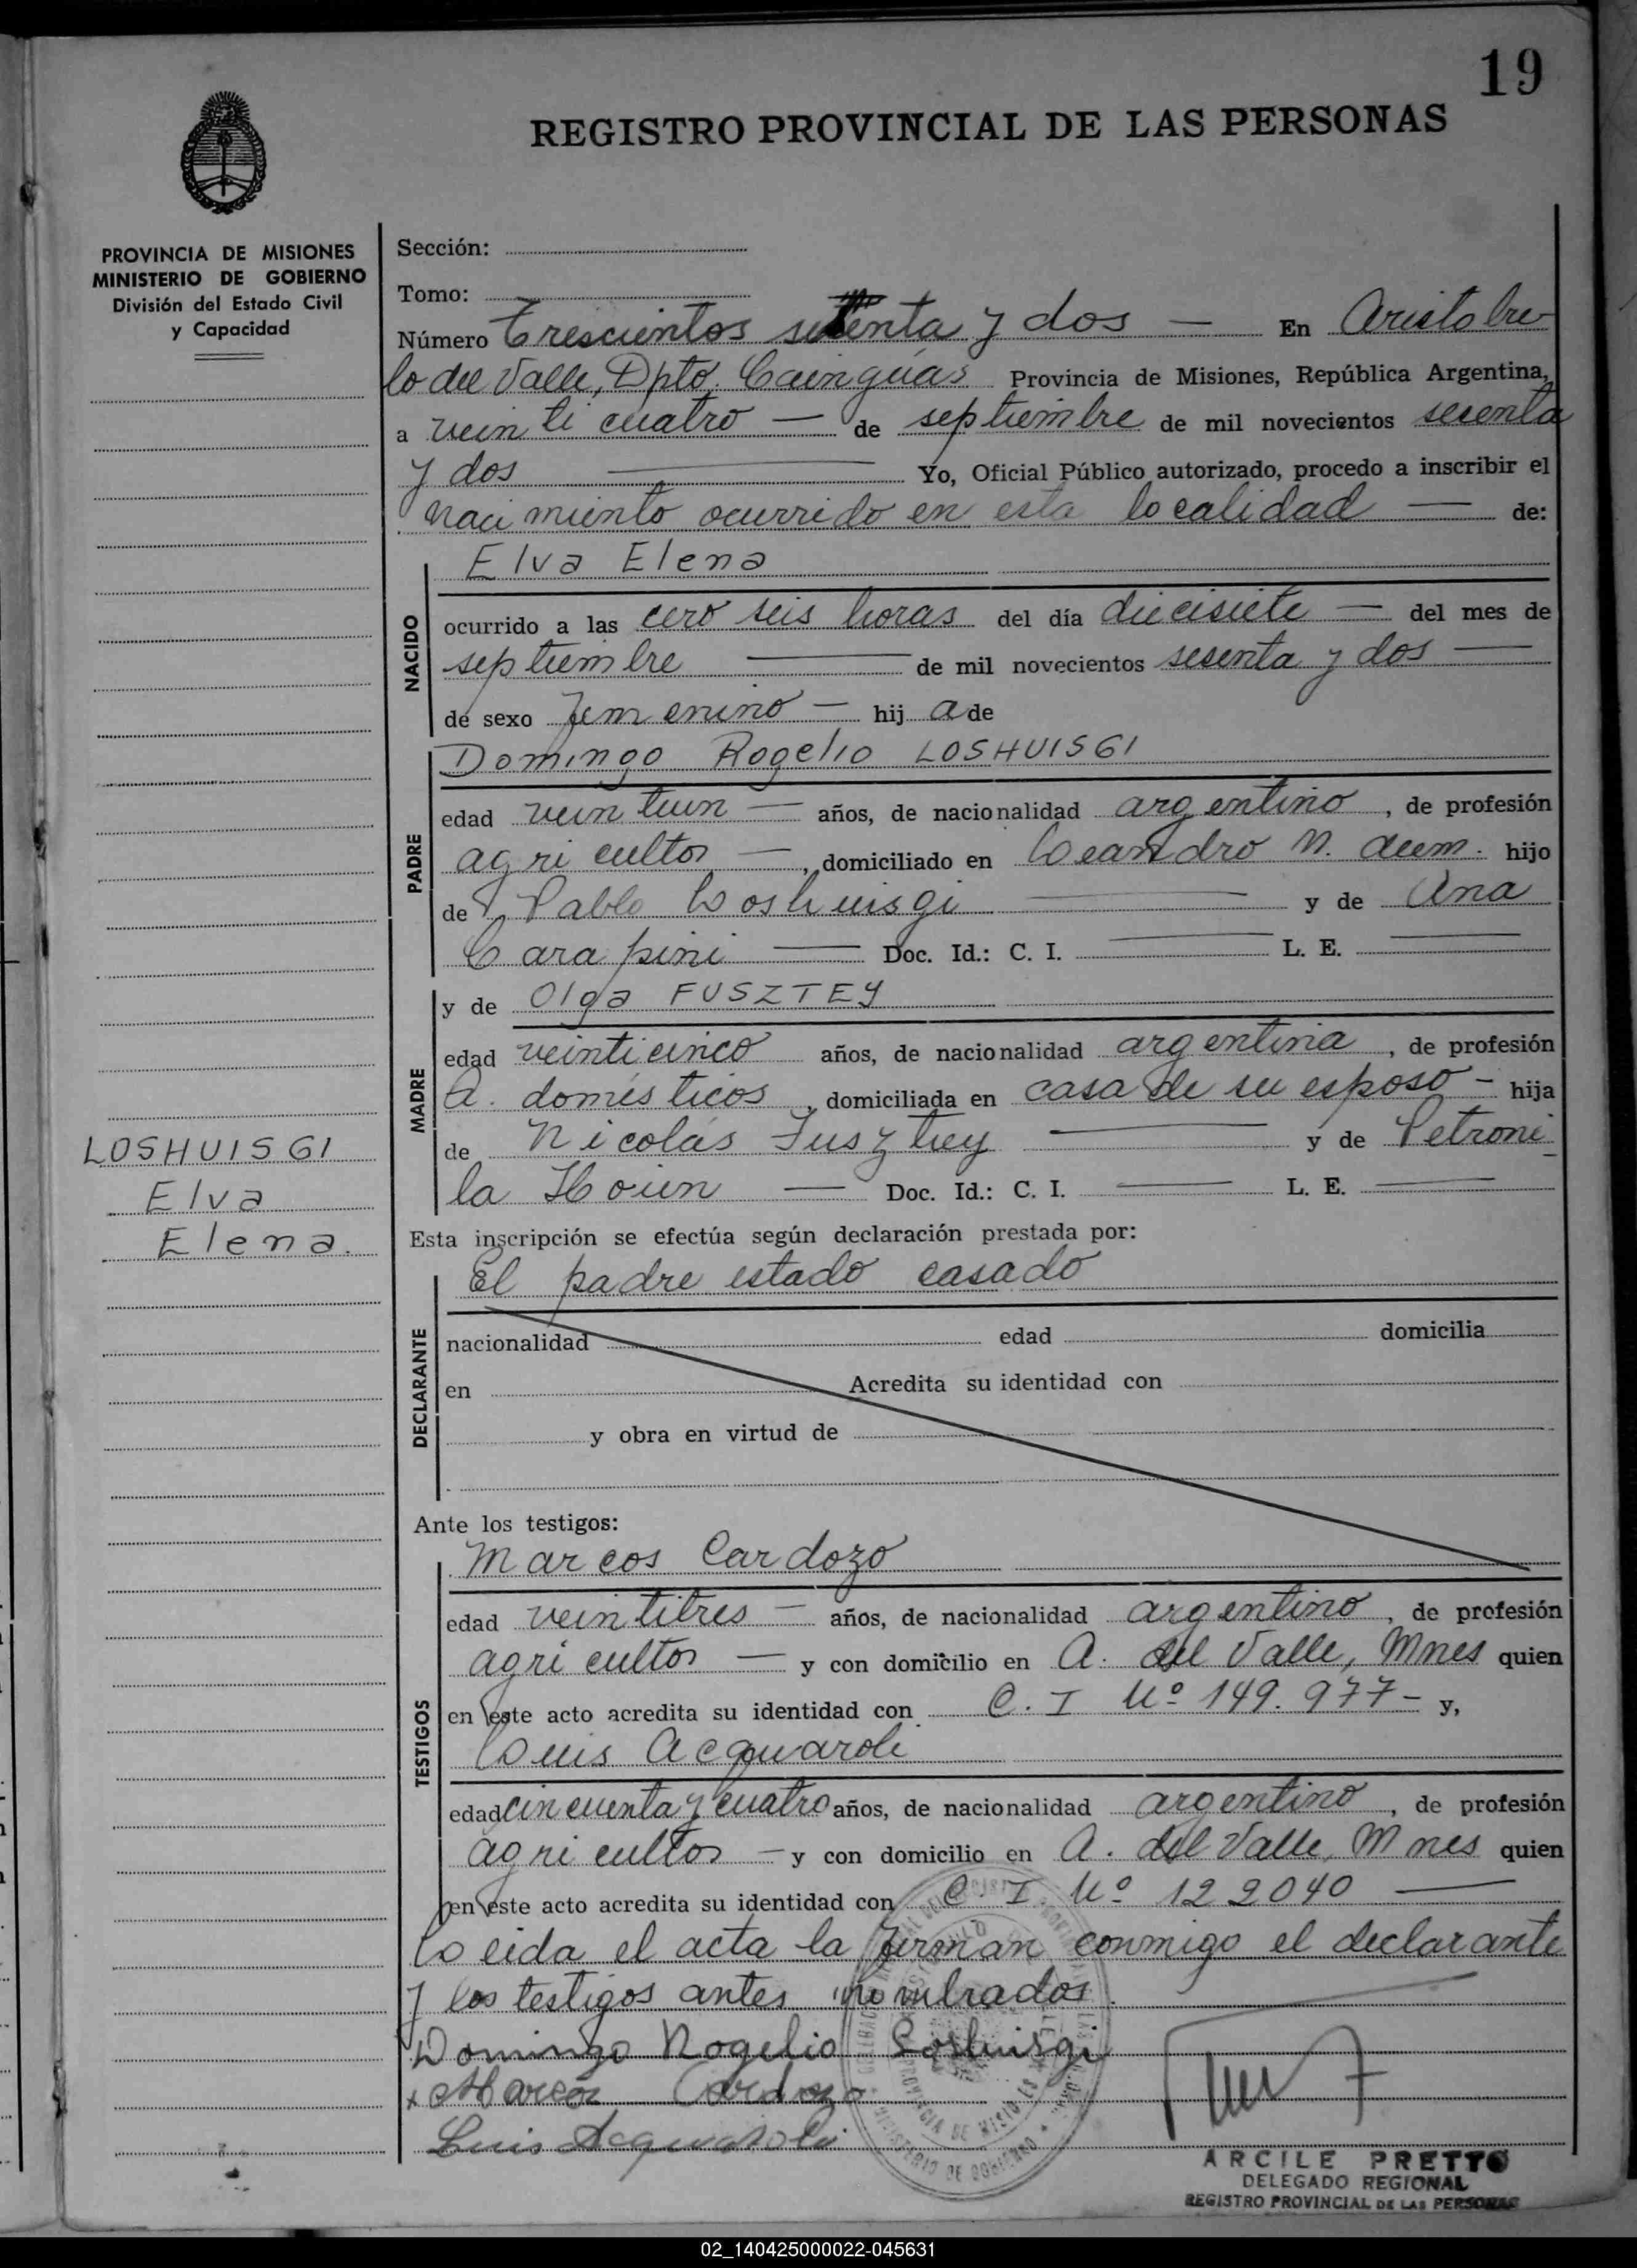 19
REGISTRO PROVINCIAL DE LAS PERSONAS
PROVINCIA DE MISIONES
MINISTERIO DE GOBIERNO
División del Estado Civil
y Capacidad
Sección:
Tomo:
Número Trescientos setenta y dos — En Aristóbu-
lo del Valle, Dpto. Cainguás Provincia de Misiones, República Argentina,
a veinticuatro — de septiembre de mil novecientos sesenta
y dos — Yo, Oficial Público autorizado, procedo a inscribir el
nacimiento ocurrido en esta localidad — de:
Elva Elena
NACIDO
ocurrido a las cero seis horas del día diecisiete — del mes de
septiembre — de mil novecientos sesenta y dos —
de sexo femenino — hij a de
Domingo Rogelio LOSHUISGI
PADRE
edad veintiun — años, de nacionalidad argentino, de profesión
agricultor —, domiciliado en Leandro N. Alem. hijo
de Pablo Loshuisgi — y de Ana
Carapini — Doc. Id.: C. I. — L. E. —
MADRE
y de Olga FUSZTEY
edad veinticinco años, de nacionalidad argentina, de profesión
Q. domésticos, domiciliada en casa de su esposo - hija
de Nicolás Fusztey — y de Petroni_
la — Doc. Id.: C. I. — L. E. —
LOSHUISGI
Elva
Elena.
Esta inscripción se efectúa según declaración prestada por:
El padre estado casado
DECLARANTE
nacionalidad edad domicilia
en Acredita su identidad con
y obra en virtud de
Ante los testigos:
Marcos Cardozo
TESTIGOS
edad veintitres — años, de nacionalidad argentino, de profesión
agricultor — y con domicilio en A. del Valle, Mnes quien
en este acto acredita su identidad con C. I Nº 149.977- y,
Luis Acquaroli
edad cincuenta y cuatro años, de nacionalidad argentino, de profesión
agricultor — y con domicilio en A. del Valle, Mnes quien
en este acto acredita su identidad con C. I. Nº 122040 —
Leida el acta la firman conmigo el declarante
y los testigos antes nombrados.
Domingo Rogelio Loshuisgi
x Marcos Cardozo
Luis Acquaroli
PROVINCIA DE MISIONES
MINISTERIO DE GOBIERNO
ARCILE PRETTO
DELEGADO REGIONAL
REGISTRO PROVINCIAL DE LAS PERSONAS
02_140425000022-045631